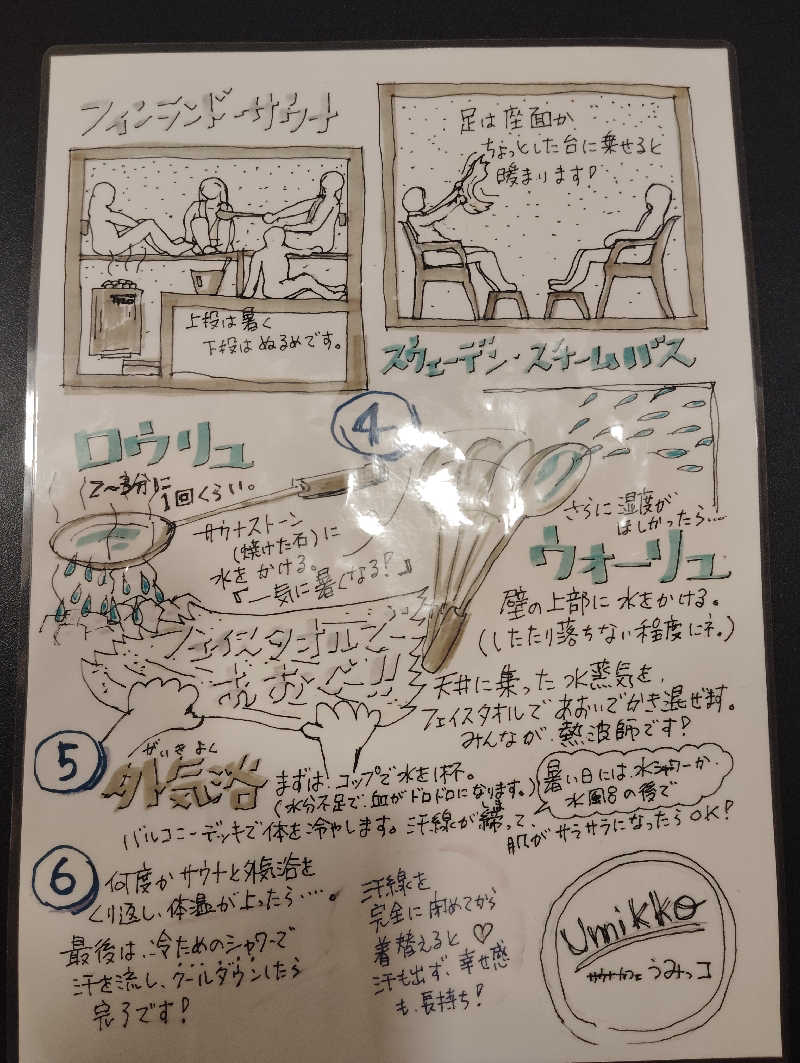 フィンランドサウナ
上段は暑く
下段はぬるめです。
足は座面か
ちょっとした台に乗せると
暖まります!
スウェーデン・スチームバス
④
ロウリュ
2〜3分に
1回くらい。
サウナストーン
(焼けた石)に
水をかける。
『一気に暑くなる!』
フェイスタオルで
あおぐ!!
さらに湿度が
ほしかったら…
ウォーリュ
壁の上部に水をかける。
(したたり落ちない程度にネ。)
天井に集った水蒸気を、
フェイスタオルであおいでかき混ぜます。
みんなが、熱波師です!
⑤
がいきよく
外気浴
まずは、コップで水を1杯。
(水分不足で、血がドロドロになります。)
バルコニーデッキで体を冷やします。汗線が締って、
肌がサラサラになったらOK!
暑い日には、水シャワーか、
水風呂の後で
⑥
何度かサウナと外気浴を
くり返し、体温が上ったら….
最後は、冷ためのシャワーで
汗を流し、クールダウンしたら
完了です!
汗線を
完全に閉めてから
着替えると♡
汗も出ず、幸せ感
も、長持ち!
Umikko
サウナカフェ うみっコ